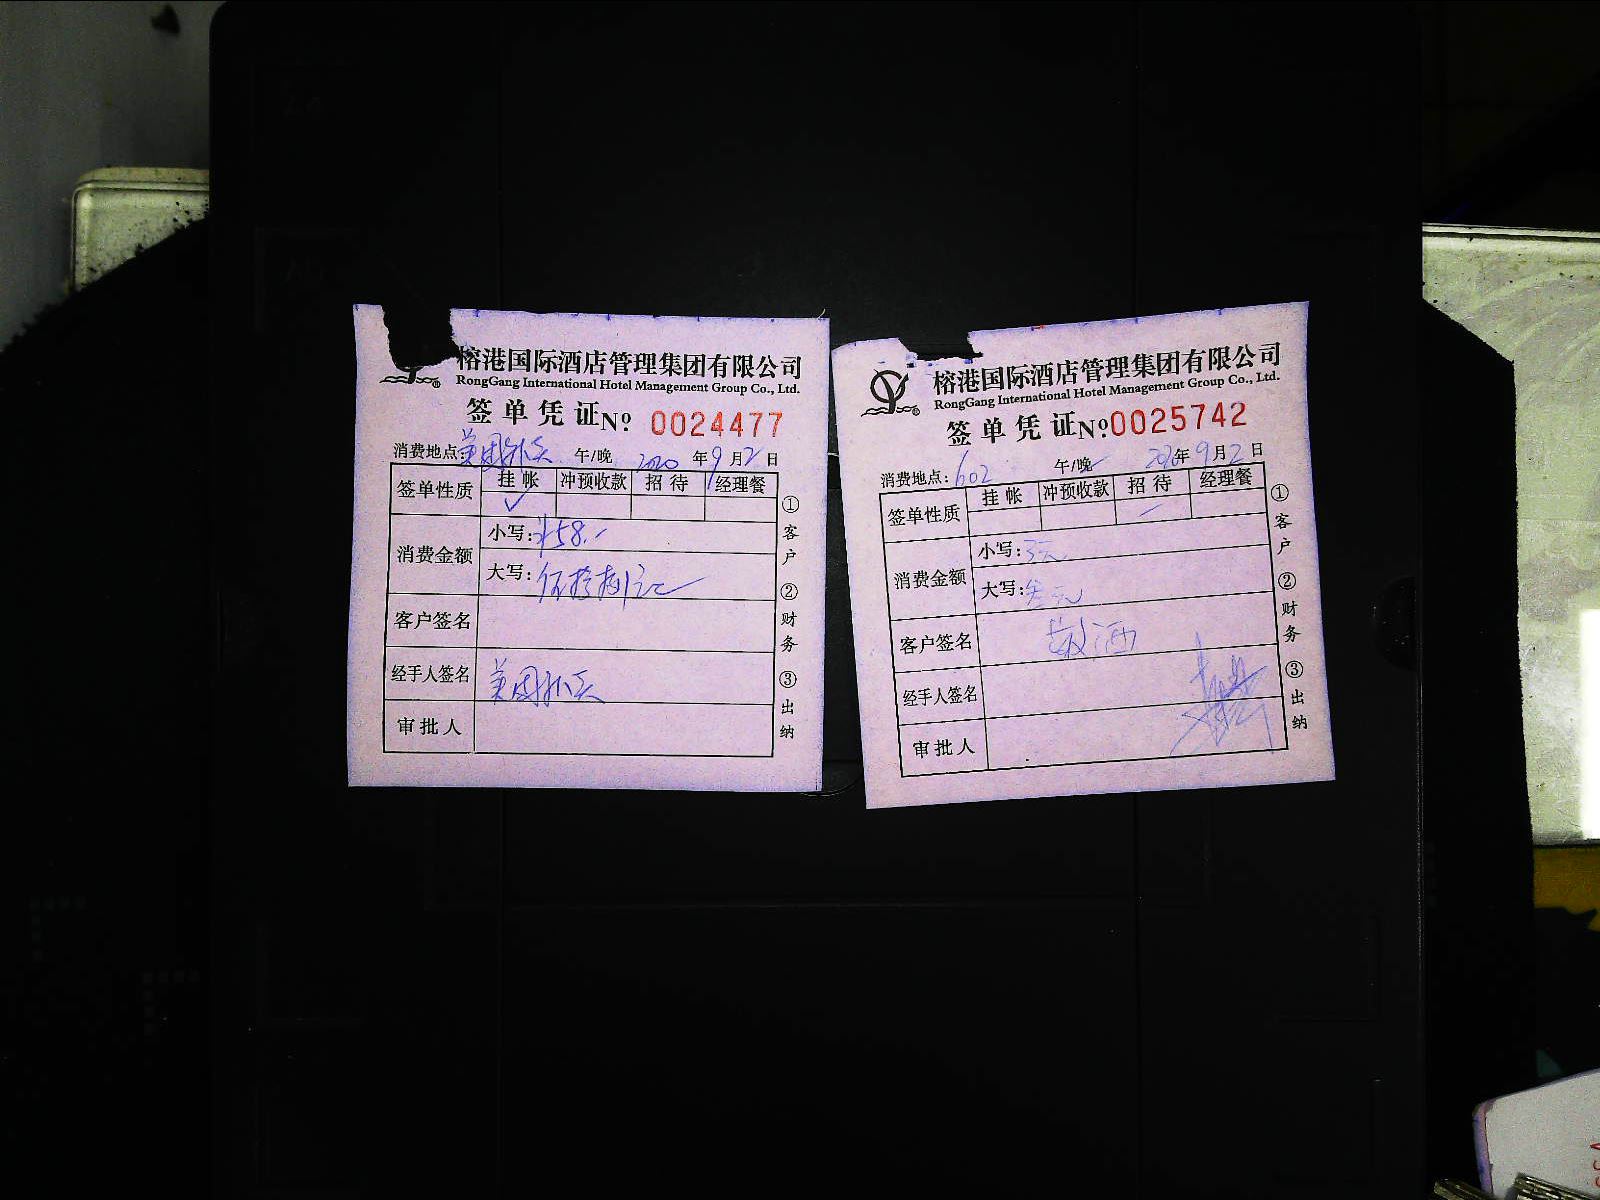 榕港国际酒店管理集团有限公司
RongGang International Hotel Management Group Co., Ltd.
签单凭证 No 0024477
消费地点:美团外卖 午/晚 2020年9月2日
签单性质 挂帐 冲预收款 招待 经理餐
✓
消费金额
小写:¥58.-
大写:伍拾捌元
客户签名
经手人签名 美团外卖
审批人
①客户 ②财务 ③出纳
榕港国际酒店管理集团有限公司
RongGang International Hotel Management Group Co., Ltd.
签单凭证 No 0025742
消费地点:602 午/晚 2020年9月2日
签单性质 挂帐 冲预收款 招待 经理餐
消费金额
小写:3元
大写:
客户签名 敬酒
经手人签名
审批人
①客户 ②财务 ③出纳